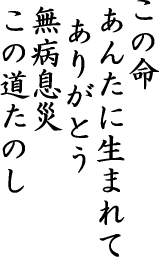 この命
あんたに生まれて
ありがとう
無病息災
この道たのし